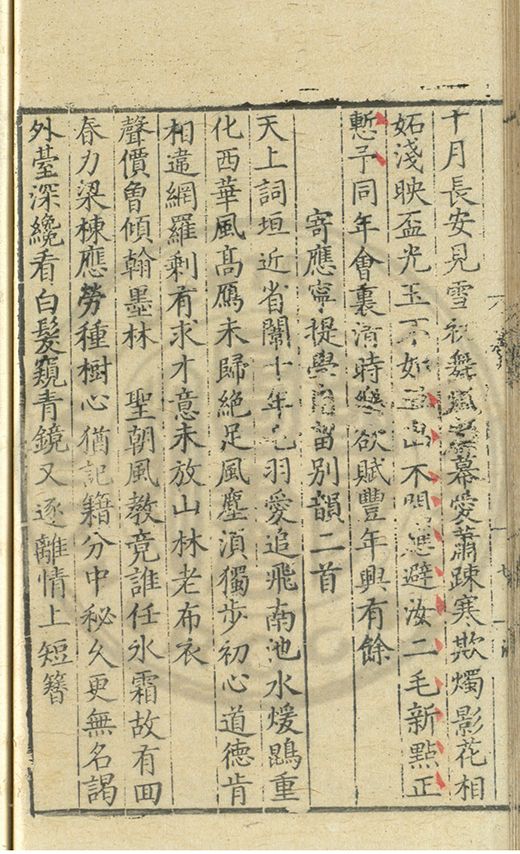 十月長安見雪初舞幕愛蕭踈寒欺燭影花相
妬淺映盃光玉不如山不避汝二毛新㸃正
慙予同年會裏湏時欲賦豐年興有餘
寄應寧提學留別韻二首
天上詞垣近省闈十年毛羽愛追飛南池水煖鵾重
化西華風髙鴈未歸絶足風塵湏獨步初心道德肯
相違網羅剩有求才意未放山林老布衣
聲價曾傾翰墨林 聖朝風教竟誰任氷霜故有囬
春力梁棟應勞種樹心猶記籍分中秘久更無名謁
外臺深纔看白髮窺青鏡又逐離情上短簪